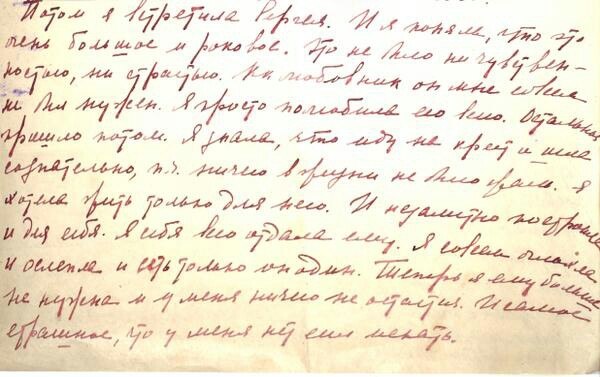 Потом я встретила Сергея. И я поняла, что это
очень большое и роковое. Это не было ни чувствен-
ностью, ни страстью. Как любовник он мне совсем
не был нужен. Я просто полюбила его всего. Остальное
пришло потом. Я знала, что иду на крест и шла
сознательно, п.ч. ничего в жизни не было жаль. Я
хотела жить только для него. И незаметно
и для себя. Я себя всю отдала ему. Я совсем оглохла
и ослепла и есть только он один. Теперь я ему больше
не нужна и у меня ничего не остается. И самое
страшное, что у меня нет сил